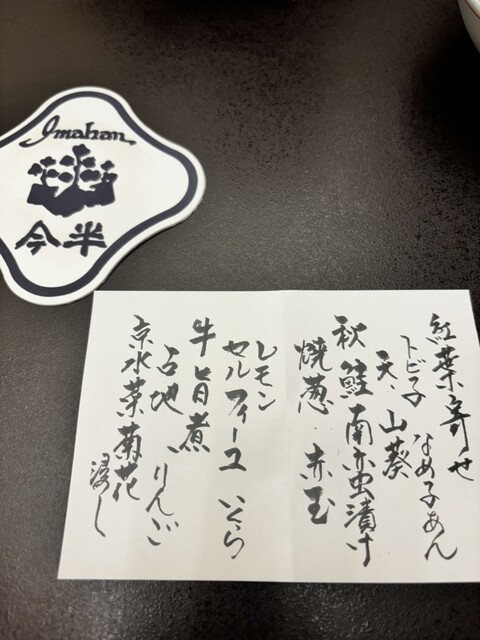 Imahan
今半
紅葉寄せ
なめ子あん
トビ子
天・山葵
秋鮭南蛮漬け
焼葱・赤玉
レモン
セルフィーユ いくら
牛旨煮
占地、りんご
京水菜菊花
浸し